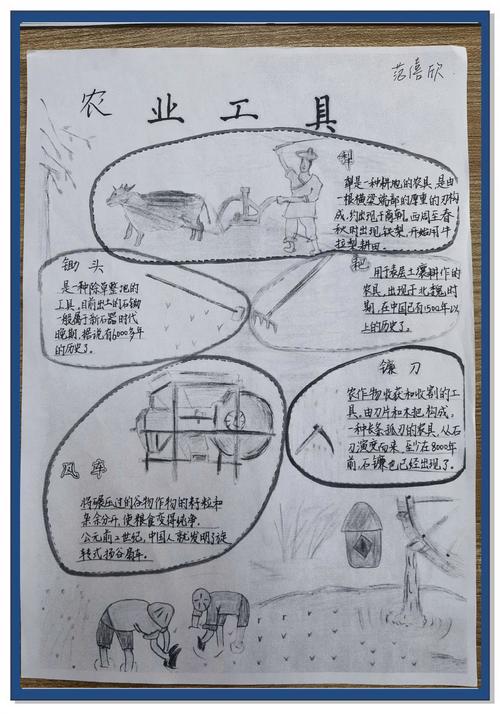 范倍欣
农业工具
犁
犁是一种耕地的农具,是由
一根横梁端部的厚重的刃构
成,约出现于商朝,西周至春
秋时出现铁犁,开始用牛
拉犁耕田。
锄头
是一种除草整地的
工具,目前出土的石锄
一般属于新石器时代
晚期,据说有6000多年
的历史了。
耙
用于表层土壤耕作的
农具,出现于北魏时
期,在中国已有1500年以
上的历史了。
镰刀
农作物收获和收割的工
具。由刀片和木把构成。
一种长条弧刃的农具,从石
刀演变而来,至少在8000年
前,石镰也已经出现了。
风车
将碾压过的谷物作物的籽粒和
杂余分开,使粮食变得纯净.
公元前2世纪,中国人就发明了旋
转式扬谷扇车。